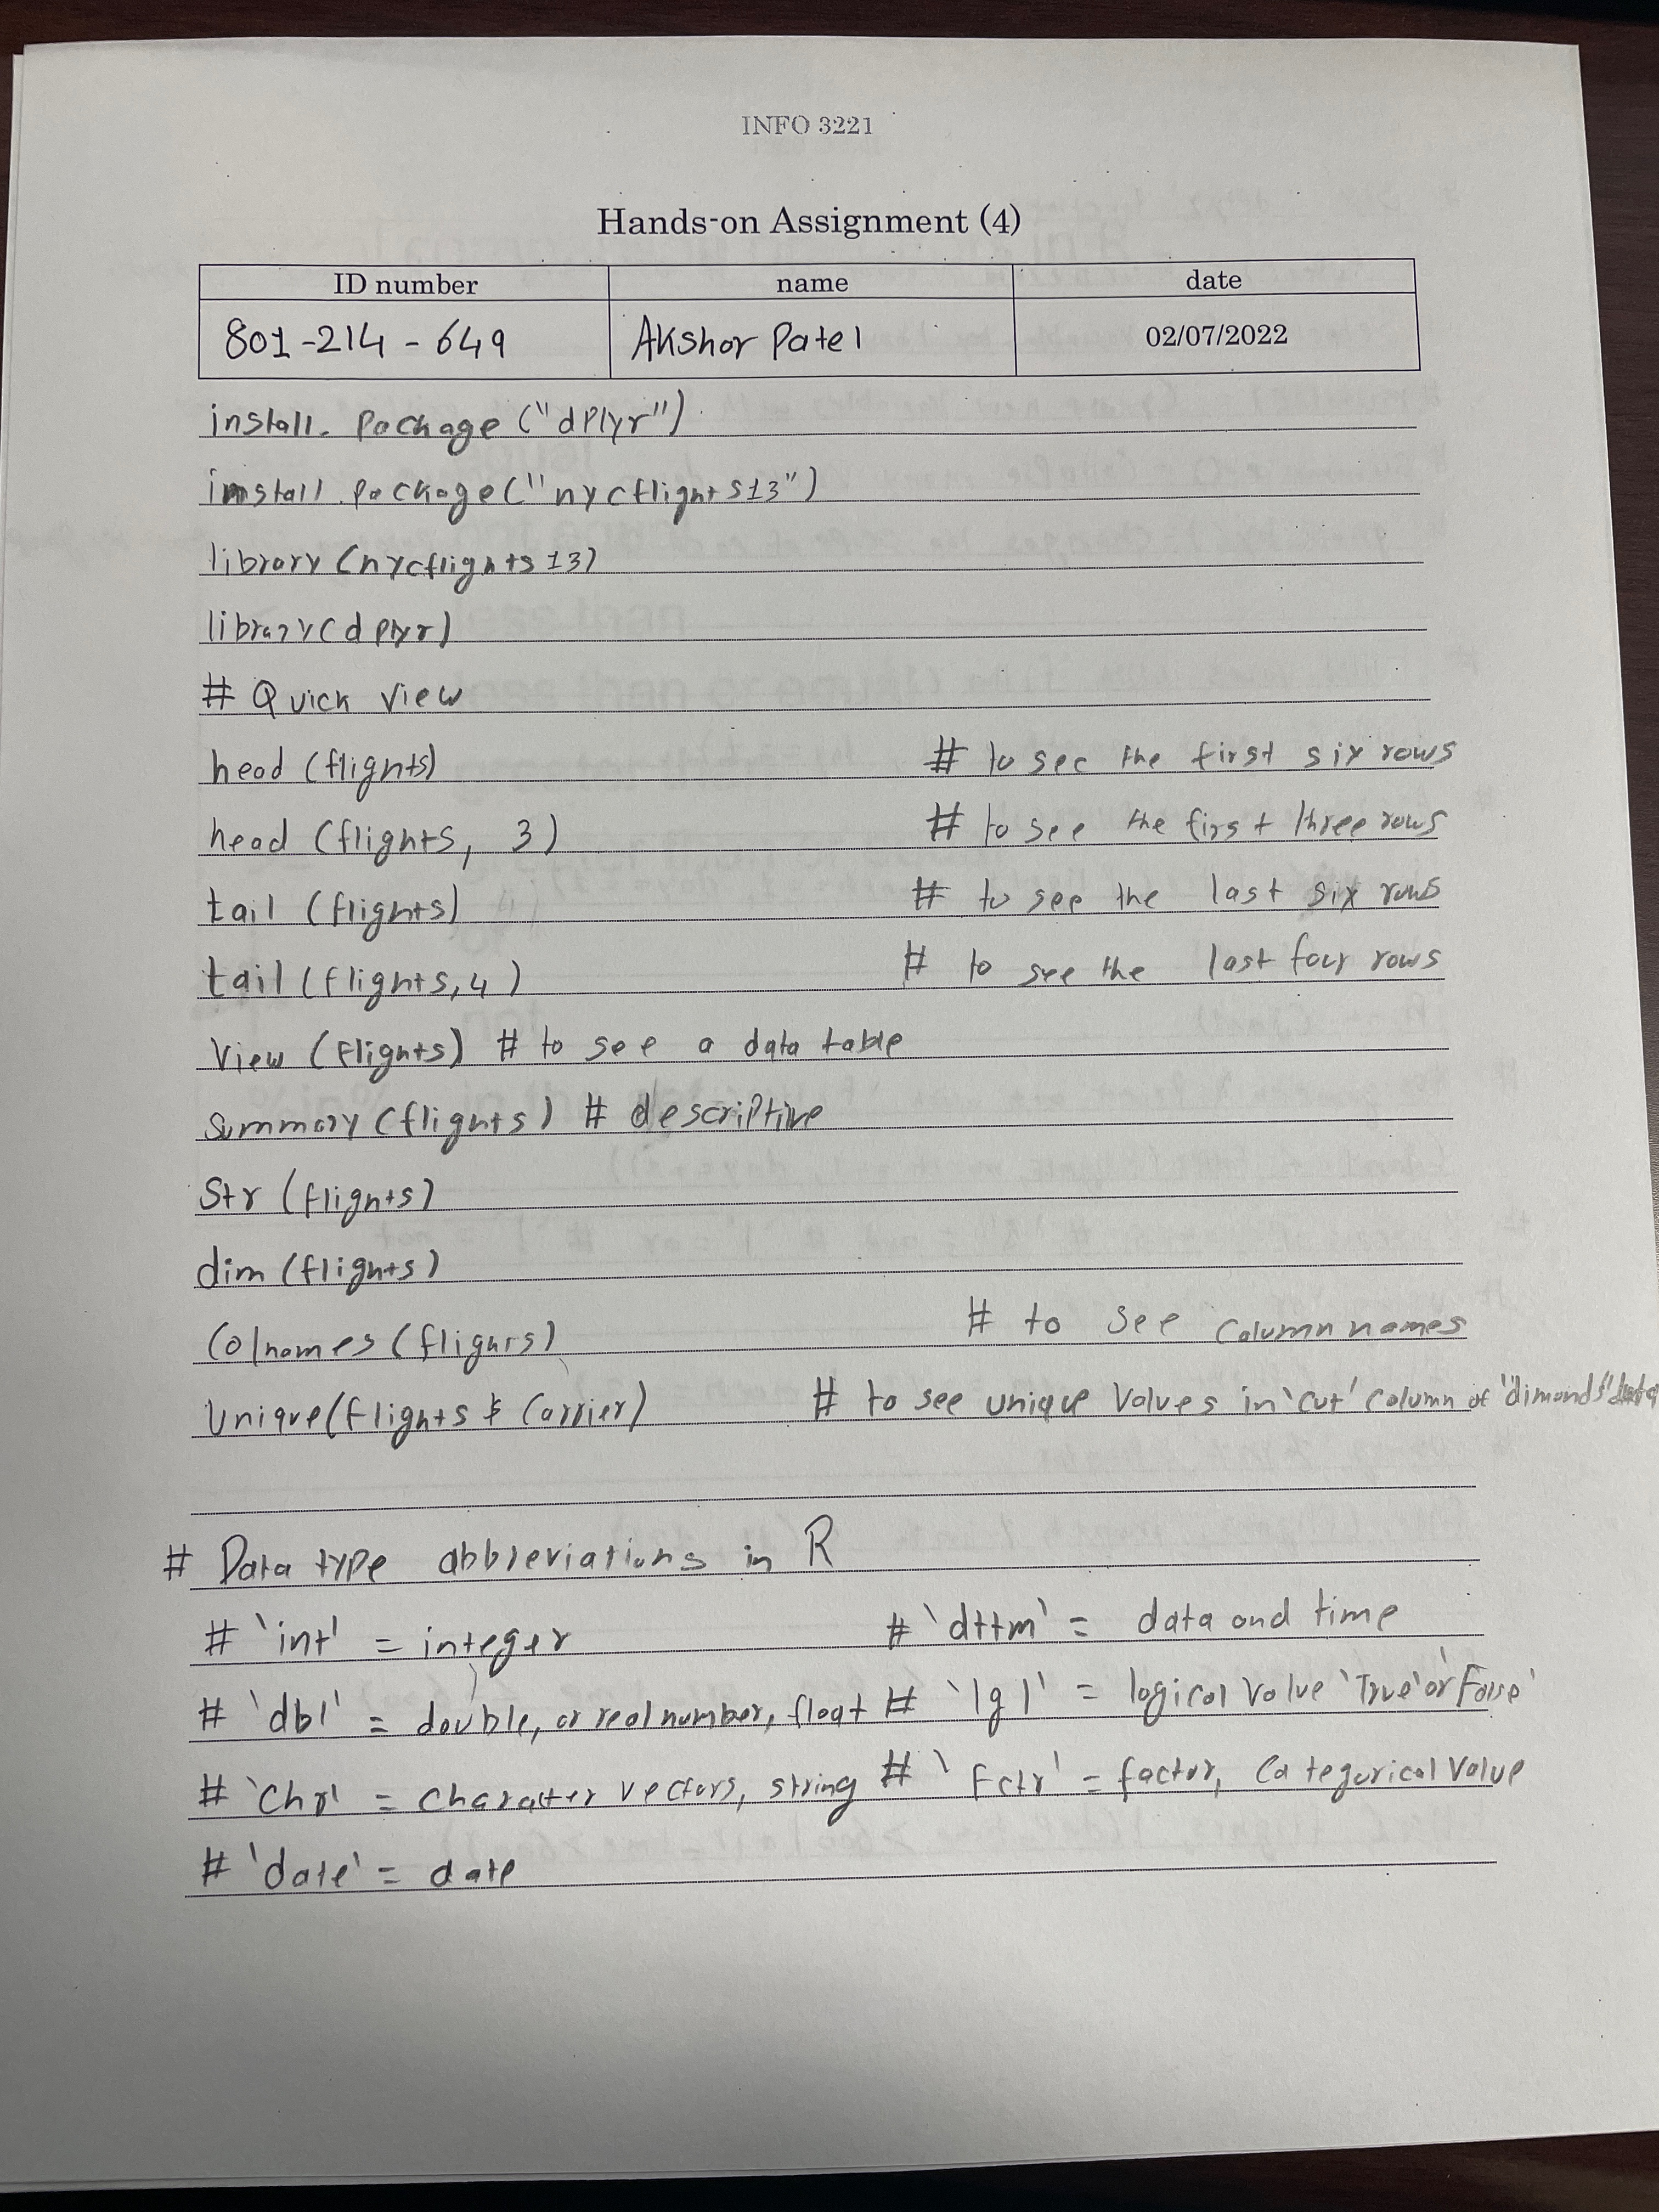 INFO 3221
Hands-on Assignment (4)
ID number name date
801-214-649 Akshar Patel 02/07/2022
install. package ("dplyr")
install. package ("nycflights13")
library (nycflights13)
library (dplyr)
# Quick view
head (flights) # to see the first six rows
head (flights, 3) # to see the first three rows
tail (flights) # to see the last six rows
tail (flights, 4) # to see the last four rows
View (flights) # to see a data table
Summary (flights) # descriptive
Str (flights)
dim (flights)
Colnames (flights) # to see column names
Unique (flights $ Carrier) # to see unique values in 'cut' column of "dimonds" data
# Data type abbreviations in R
# 'int' = integer # 'dttm' = data and time
# 'dbl' = double, or real number, float # 'lgl' = logical value 'True' or 'False'
# 'Chr' = character vectors, string # 'Fctr' = factor, Categorical value
# 'date' = date